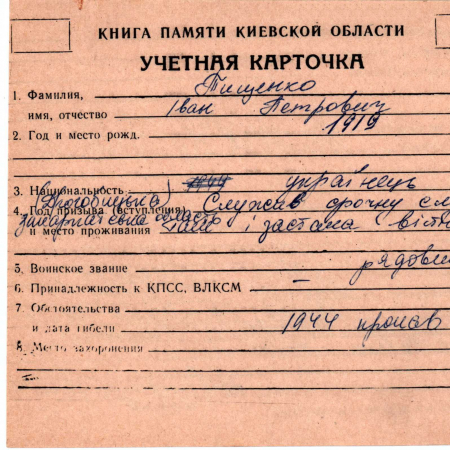 КНИГА ПАМЯТИ КИЕВСКОЙ ОБЛАСТИ
УЧЕТНАЯ КАРТОЧКА
1. Фамилия, Тищенко
имя, отчество Іван Петрович
2. Год и место рожд. 1919
3. Национальность 1944 українець
(Дрогобицька)
4. Год призыва (вступления) Служив срочну сл
закарпатська область
и место проживания там і застала вітч
5. Воинское звание рядовий
6. Принадлежность к КПСС, ВЛКСМ —
7. Обстоятельства
и дата гибели 1944 пропав
8. Место захоронения